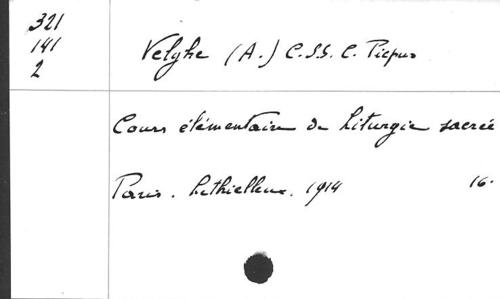 321
141
2
Velghe (A.) C.SS.C. Picpus
Cours élémentaire de Liturgie sacrée
Paris. Lethielleux. 1914 16.